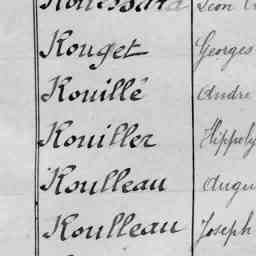 Rouget Georges
Rouillé André
Rouiller Hippoly
Roulleau Augu
Roulleau Joseph